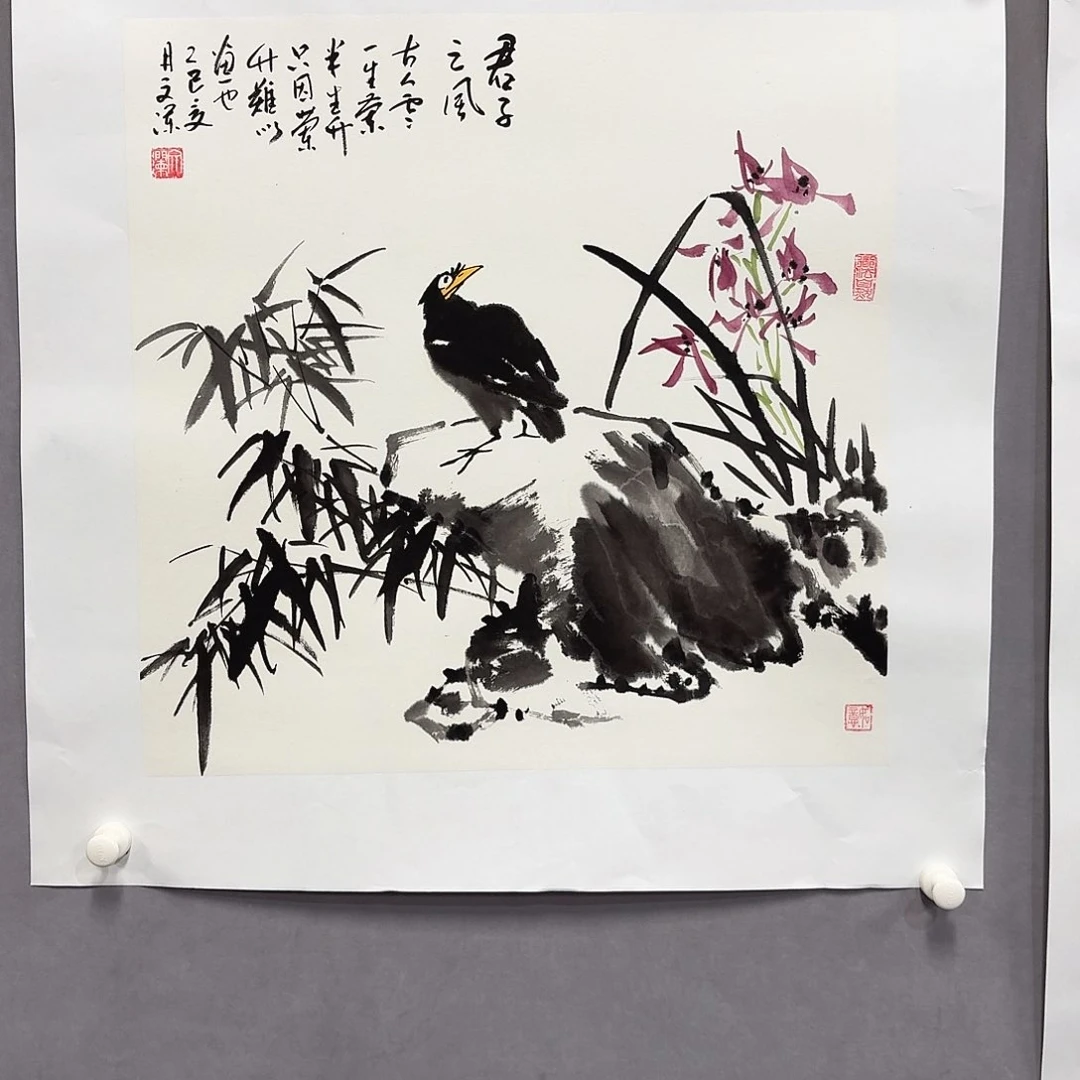 君子
之風
古人雲
一生蘭
半生竹
只因蘭
竹難以
畫也
乙巳夏
月文